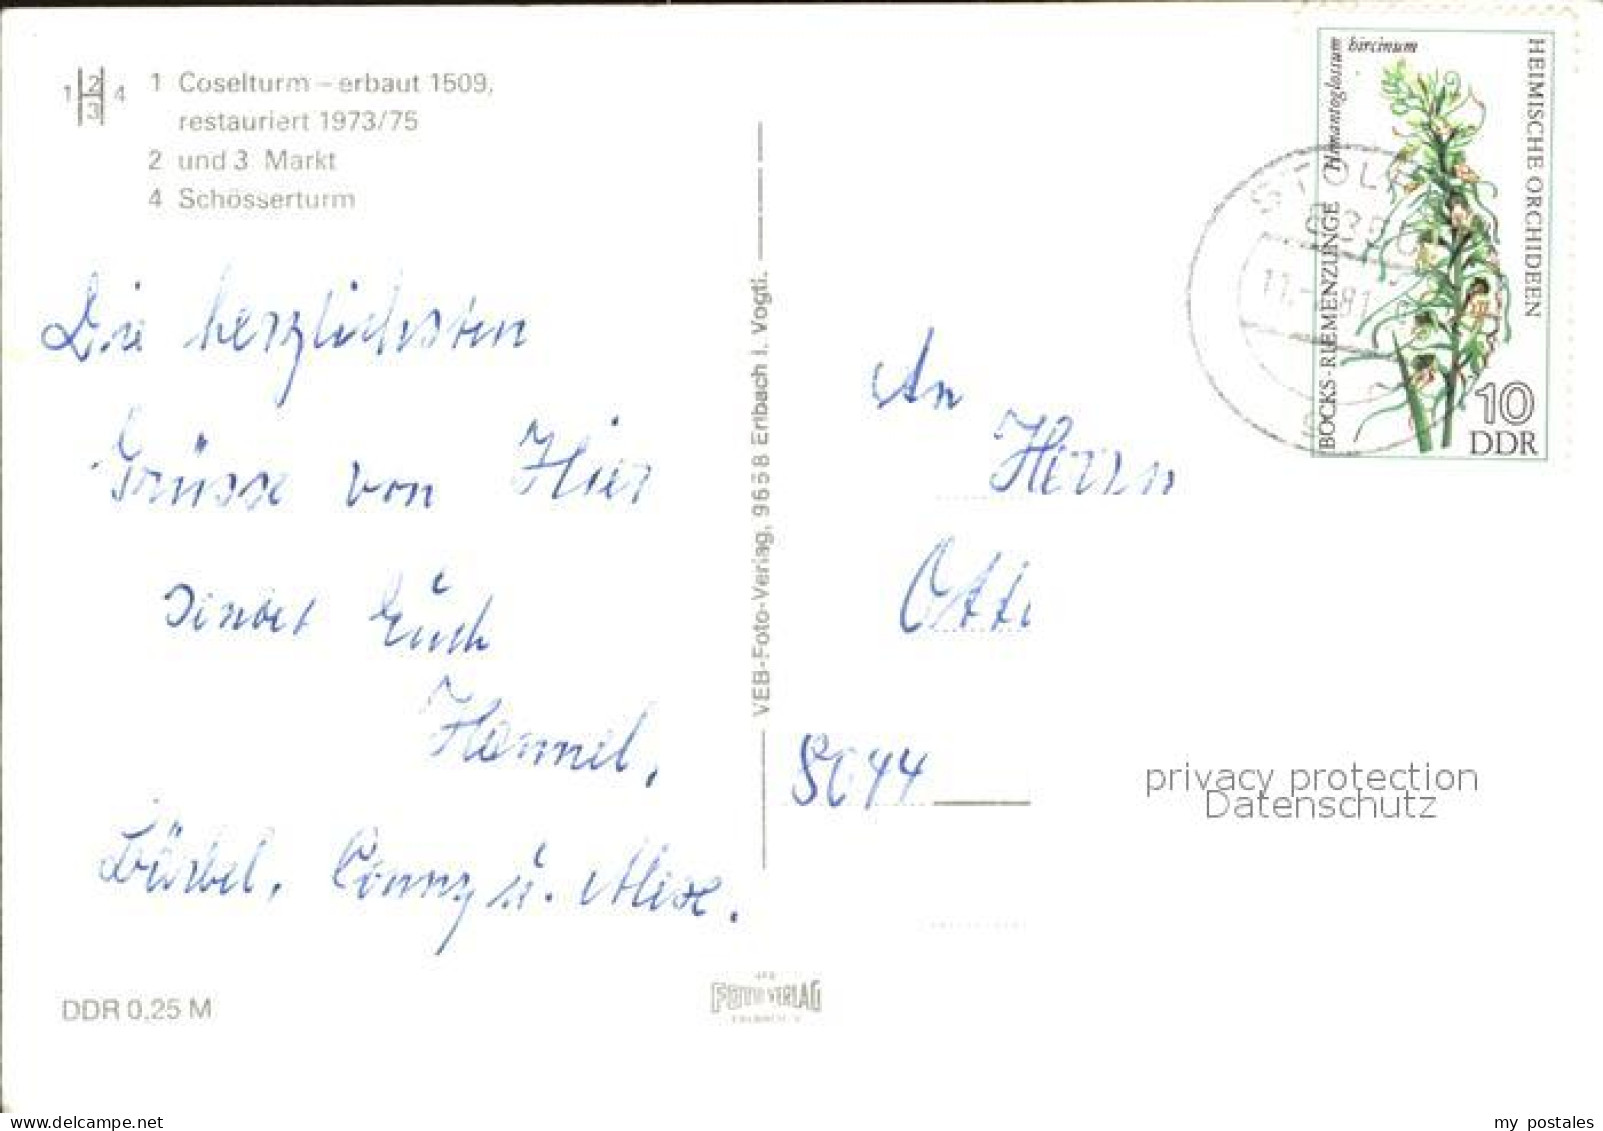 1 2 3 4
1 Coselturm – erbaut 1509,
restauriert 1973/75
2 und 3 Markt
4 Schösserturm
Die herzlichsten
Grüsse von Hier
sendet Euch
Hannel,
Bärbel, Conny u. Alex.
DDR 0,25 M
VEB-Foto-Verlag, 9658 Erlbach i. Vogtl.
FOTO VERLAG
An
Herrn
Otti
8044
BOCKS-RIEMENZUNGE Himantoglossum hircinum
HEIMISCHE ORCHIDEEN
10
DDR
STOL
privacy protection
Datenschutz
hip-collection.de
my postales